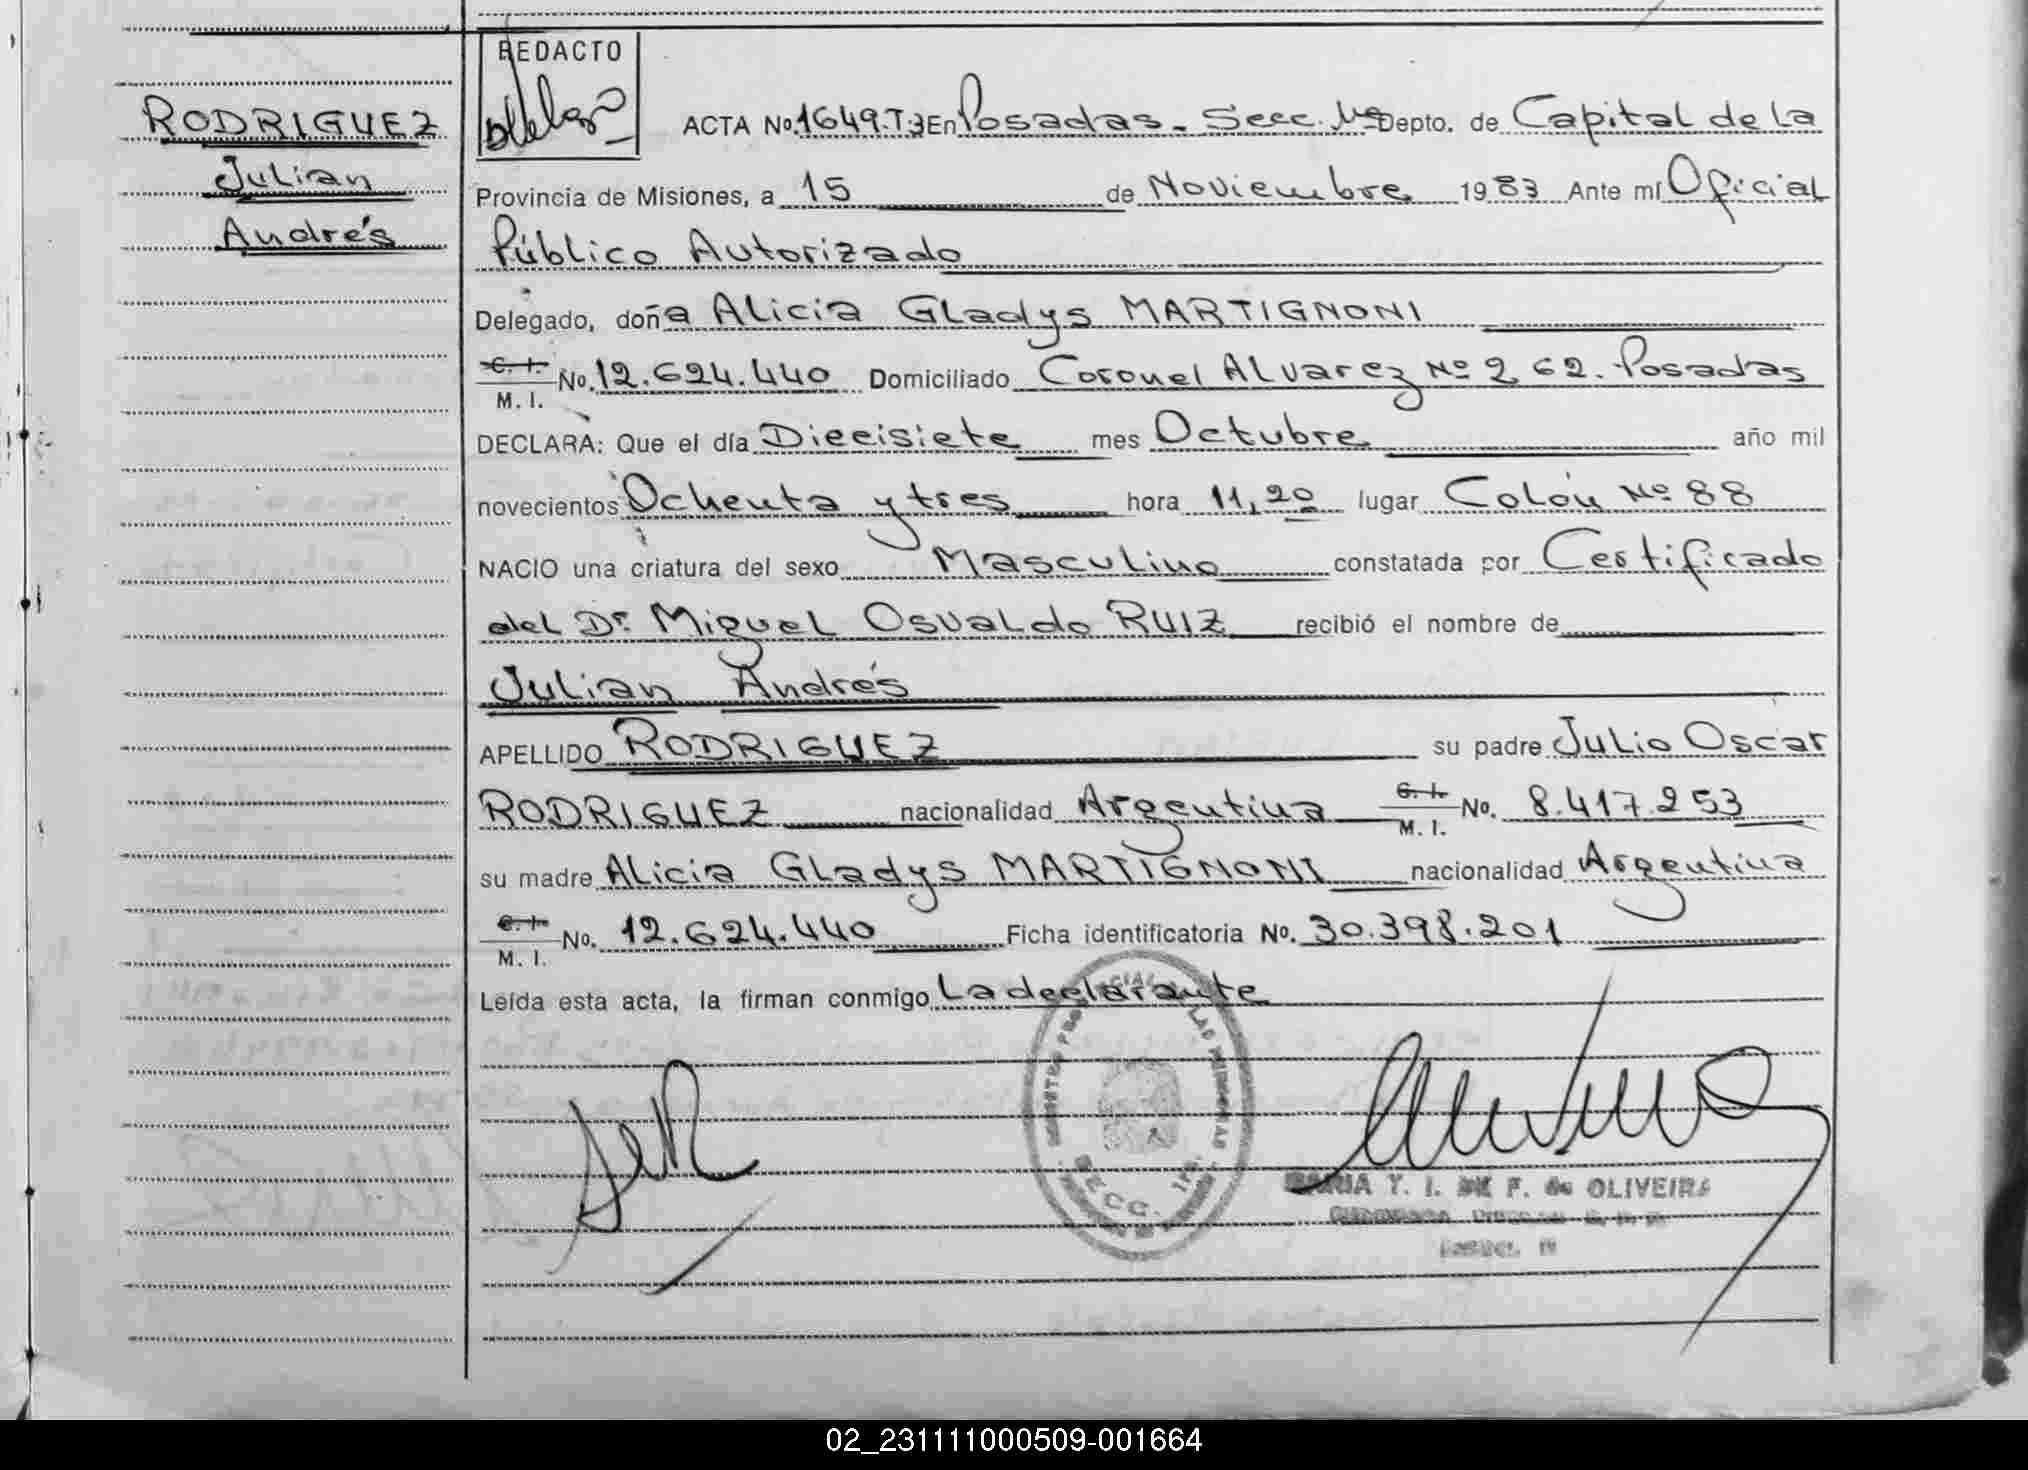 REDACTO
RODRIGUEZ
Julian
Andrés
ACTA No. 1649.T.3 En Posadas. Secc. 1ª Depto. de Capital de la
Provincia de Misiones, a 15 de Noviembre 1983 Ante mí Oficial
Público Autorizado
Delegado, doña Alicia Gladys MARTIGNONI
C. I. M. I. No. 12.624.440 Domiciliado Coronel Alvarez Nº 262. Posadas
DECLARA: Que el día Diecisiete mes Octubre año mil
novecientos Ochenta y tres hora 11,20 lugar Colón Nº 88
NACIO una criatura del sexo Masculino constatada por Certificado
del Dr. Miguel Osvaldo RUIZ recibió el nombre de
Julian Andrés
APELLIDO RODRIGUEZ su padre Julio Oscar
RODRIGUEZ nacionalidad Argentina C. I. M. I. No. 8.417.253
su madre Alicia Gladys MARTIGNONI nacionalidad Argentina
C. I. M. I. No. 12.624.440 Ficha identificatoria No. 30.398.201
Leída esta acta, la firman conmigo La declarante
SECC. 1ra.
MARIA T. I. DE F. de OLIVEIRA
02_231111000509-001664